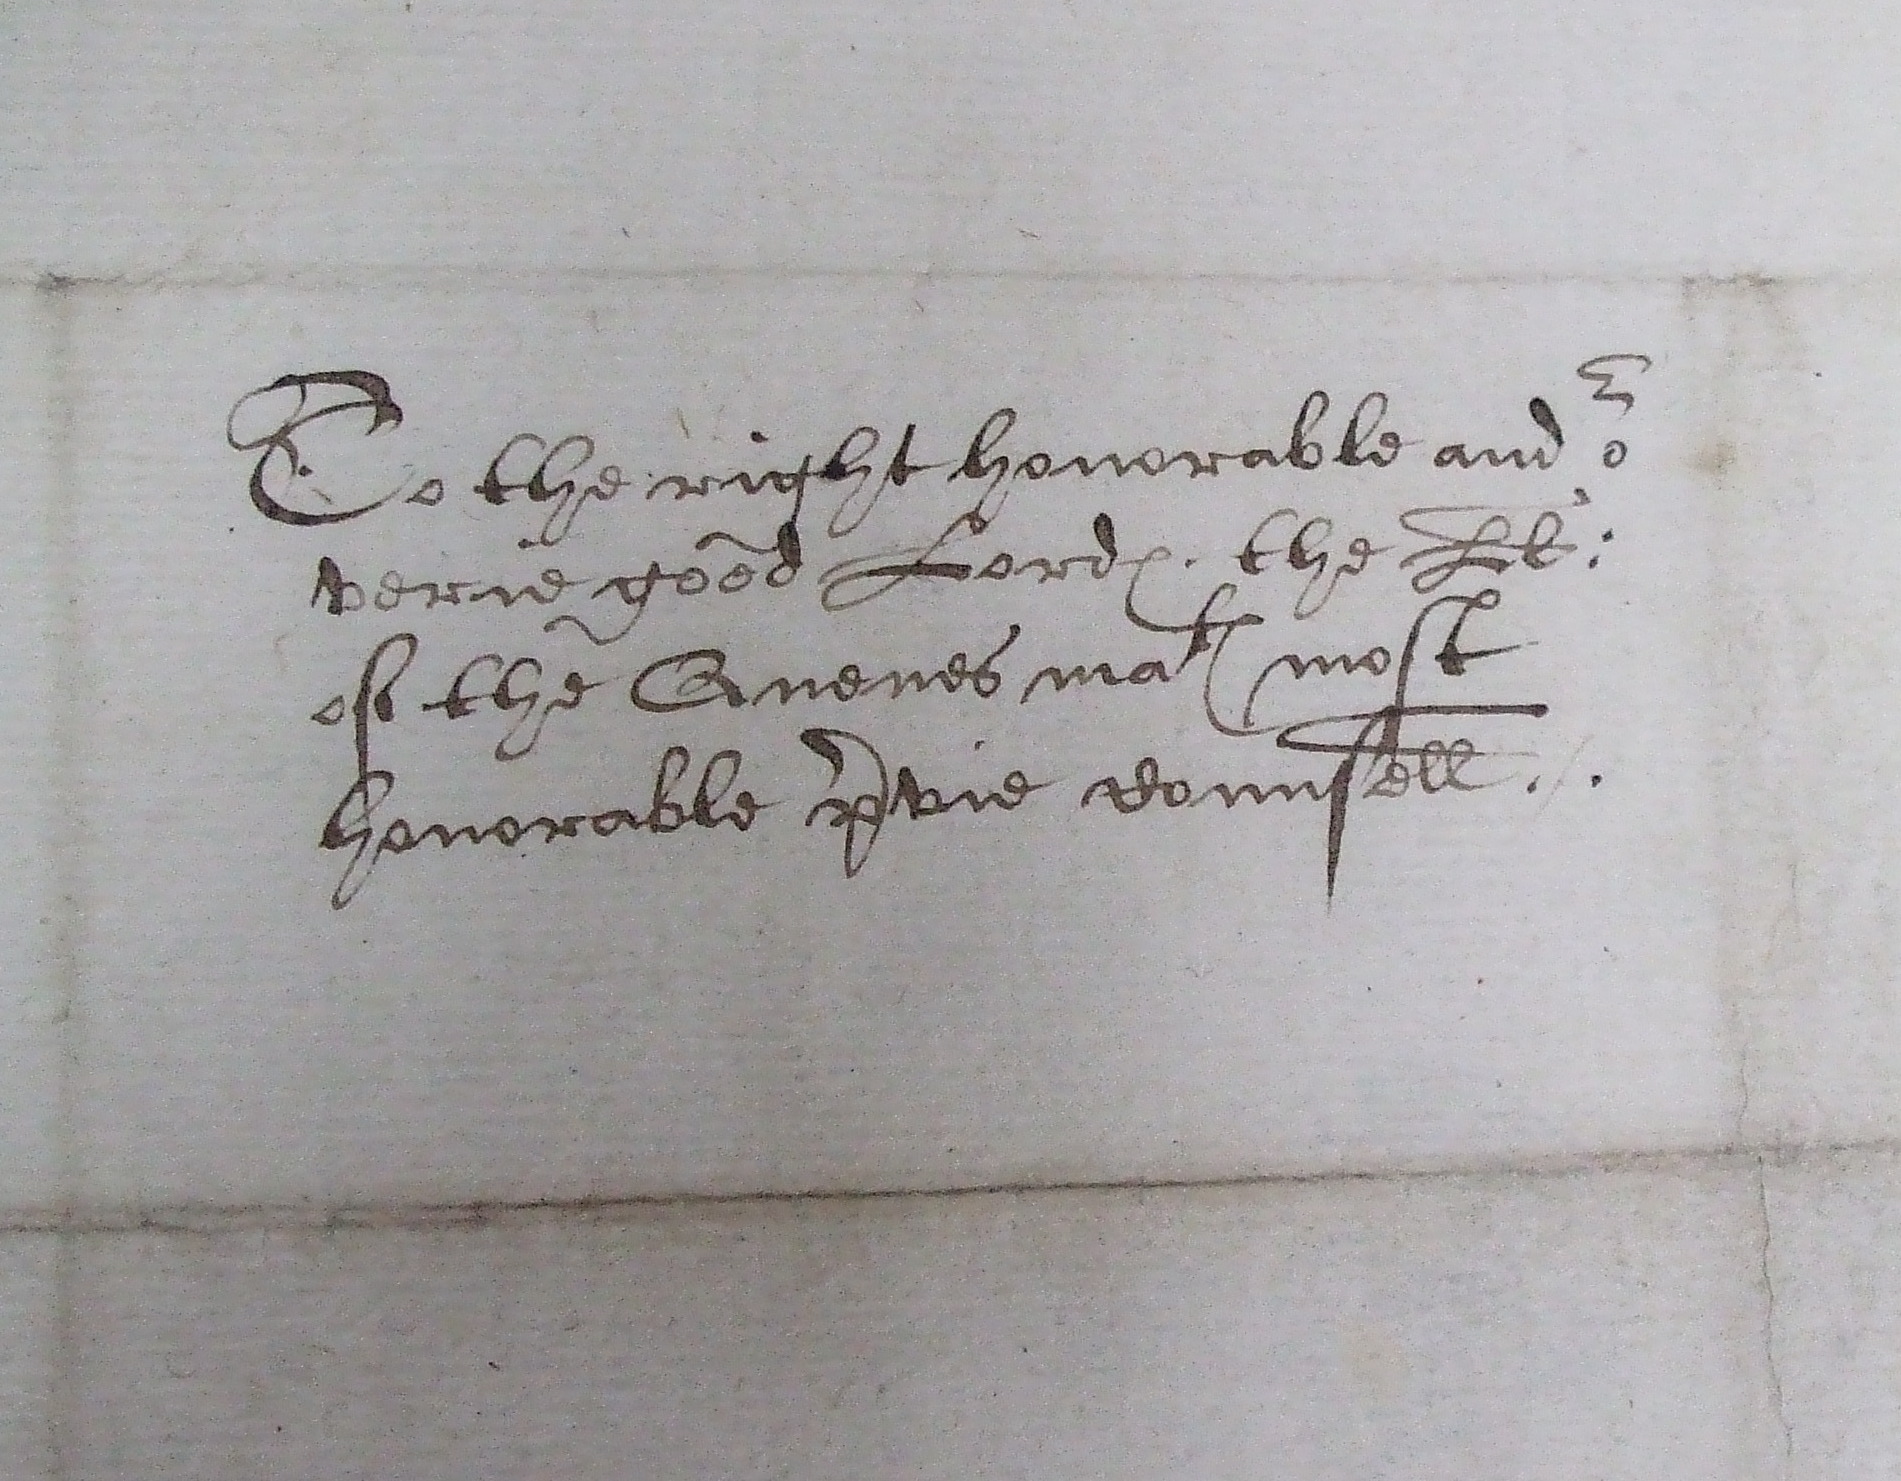 To the right honorable and o<sup>r</sup>
verie good Lordes. the LL:
of the Quenes ma<sup>tes</sup> most
honorable pryvie counsell..